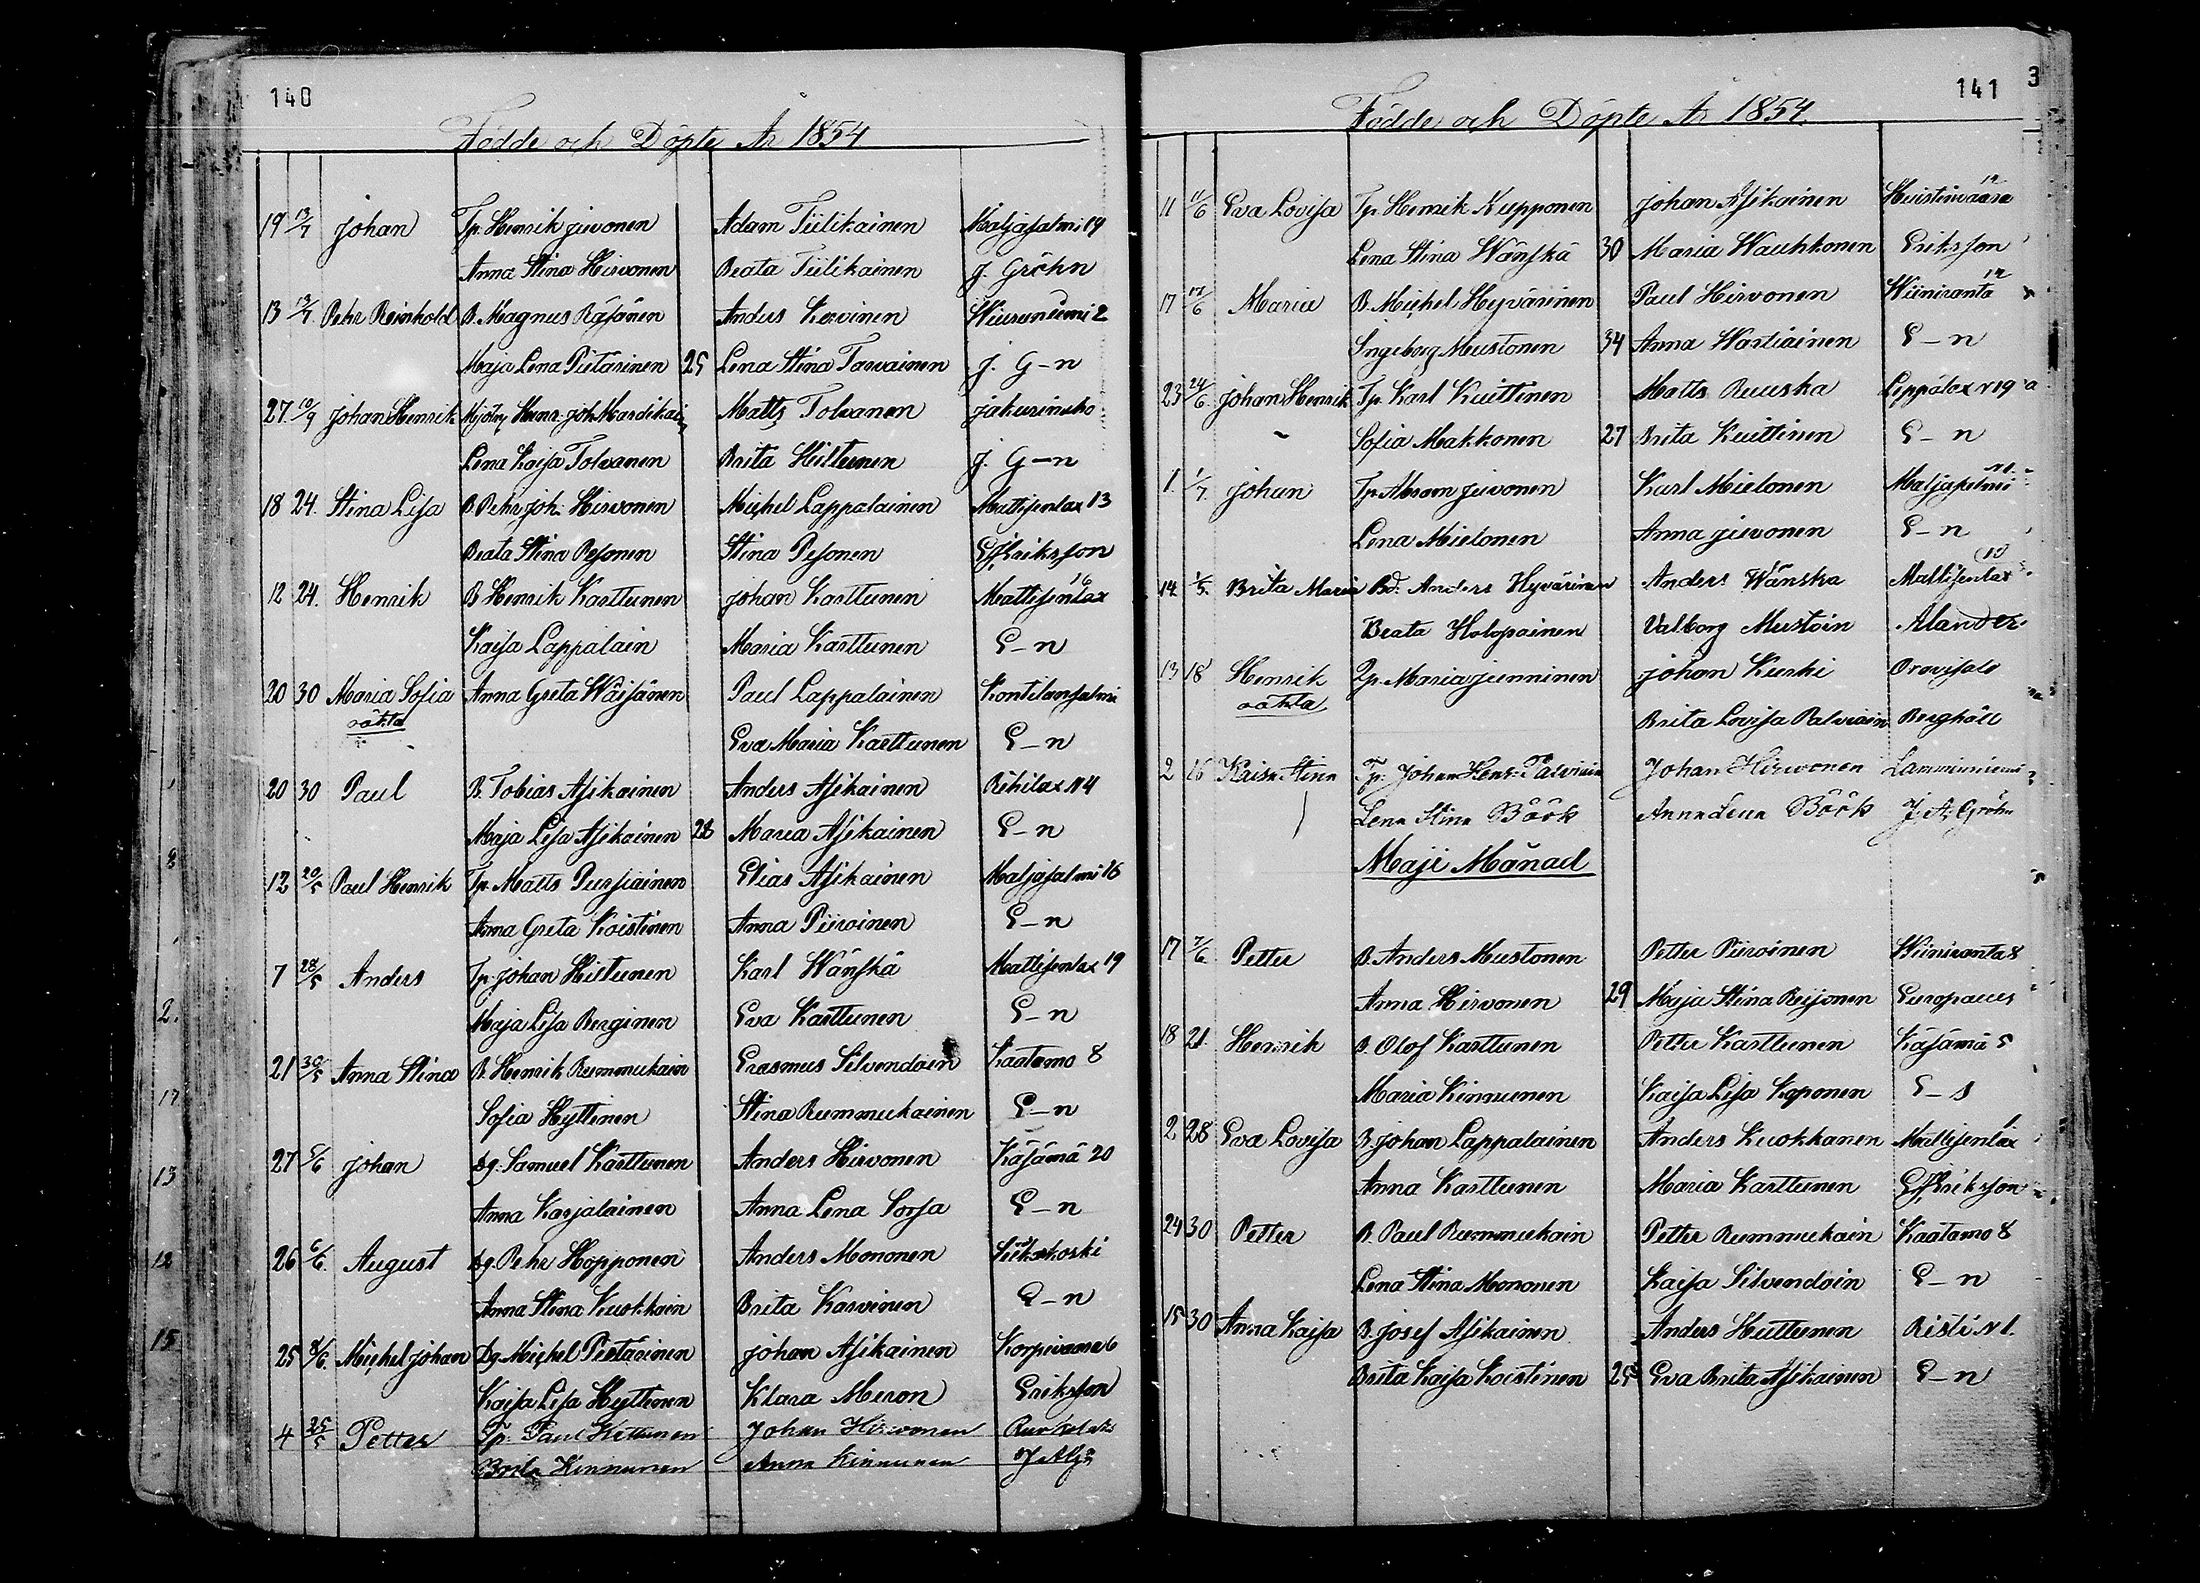 140
Födde och Döpte År 1854
19 13/7 Johan Tp. Henrik Juvonen Adam Tiilikainen Maljasalmi 19
Anna Stina Hirvonen Beata Tiilikainen J. Gröhn
13 13/7 Pehr Reinhold B. Magnus Räsänen Anders Kervinen 2
Maja Lena Pietarinen 25 Lena Stina Tarvainen J. G-n
27 10/9 Johan Henrik Matts Tolvanen
Lena Kaisa Tolvanen Brita Hiltunen J. G-n
18 24. Stina Lisa B. Pehr Joh. Hirvonen Michel Lappalainen Mattisenlax 13
Beata Stina Pesonen Stina Pesonen Eriksson
12 24. Henrik B Henrik Karttunen Johan Karttunen Mattisenlax 16
Kaisa Lappalain Maria Karttunen E-n
20 30 Maria Sofia Anna Greta Wäisänen Paul Lappalainen Kontilansalmi
oäkta
Eva Maria Karttunen E-n
20 30 Paul B. Tobias Asikainen Anders Asikainen Rihilax N 4
Maja Lisa Asikainen 28 Maria Asikainen E-n
12 20/5 Paul Henrik Tp. Matts Pursiainen Elias Asikainen Maljasalmi 16
Anna Greta Koistinen Anna Piiroinen E-n
7 28/5 Anders Tp. Johan Hiltunen Karl Wänskä Mattisenlax 19
Maja Lisa Berginen Eva Karttunen E-n
21 30/5 Anna Stina B. Henrik Rummukain Erasmus Silvendoin Kaatamo 8
Sofia Hyttinen Stina Rummukainen E-n
27 5/6 Johan Dg. Samuel Karttunen Anders Hirvonen Käsämä 20
Anna Karjalainen Anna Lena Sorsa E-n
26 6/6. August Dg. Pehr Höpponen Anders Mononen Siikakoski
Anna Stina Kuokkain Brita Karvinen E-n
25 8/6. Michel Johan Dg. Michel Pietarinen Johan Asikainen Korpivaara 6
Kaisa Lisa Hyttinen Klara Meron Eriksson
4 25/5 Petter Tp. Paul Kettunen Johan Hirvonen
Brita Kinnunen Anna Kinnunen
2.
17
13
12
15
141
3
Födde och Döpte År 1854.
11 11/6 Eva Lovisa Tp. Henrik Nupponen Johan Asikainen Huistinvaara 12
Lena Stina Wänskä 30 Maria Wauhkonen Eriksson
17 17/6 Maria B. Michel Hyvärinen Paul Hirvonen Wiiniranta 12
Ingeborg Mustonen 34 Anna Wartiainen E-n
23 24/6 Johan Henrik Tp. Karl Kuittinen Matts Ruuska Leppälax N 19
Sofia Makkonen 27 Brita Kuittinen E-n
1. 1/7. Johan Tp. Abram Juvonen Karl Mielonen Maljasalmi N 1.
Lena Mielonen Anna Juvonen E-n
14 1/5. Brita Maria Bd. Anders Hyvärinen Anders Wänska Mattisenlax 10
Beata Holopainen Valborg Mustoin Alander
13 18 Henrik Pp. Maria Junninen Johan Kurki Oravisalo
oäkta
Brita Lovisa Palviain Berghäll
2 16 Kaisa Stina Tp. Johan Henr. Palviain Johan Hirvonen Lamminniemi
Lena Stina Böök Anna Lena Böök J. A. Gröhn
Maji Månad
17 7/6 Petter B. Anders Mustonen Petter Piiroinen Wiiniranta 8
Anna Hirvonen 29 Maja Stina Reijonen Europaeus
18 21. Henrik B. Olof Karttunen Petter Karttunen Käsämä 5
Maria Kinnunen Kaisa Lisa Koponen E-s
2 28 Eva Lovisa B. Johan Lappalainen Anders Kuokkanen Mattisenlax
Anna Karttunen Maria Karttunen Eriksson
24 30 Petter B. Paul Rummukain Petter Rummukain Kaatamo 8
Lena Stina Mononen Kaisa Silvendoin E-n
15 30 Anna Kaisa B. Josef Asikainen Anders Huttunen Risti N 1.
Brita Kaisa Koistinen 25 Eva Brita Asikainen E-n